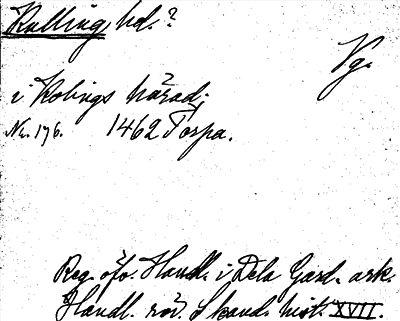 Kulling, hd.?
Vg.
i Kolings härad,
Nr. 176. 1462 Torpa.
Reg. öfv. Handl. i Dela Gard. ark.
Handl. rör. Skand. hist. XVII.